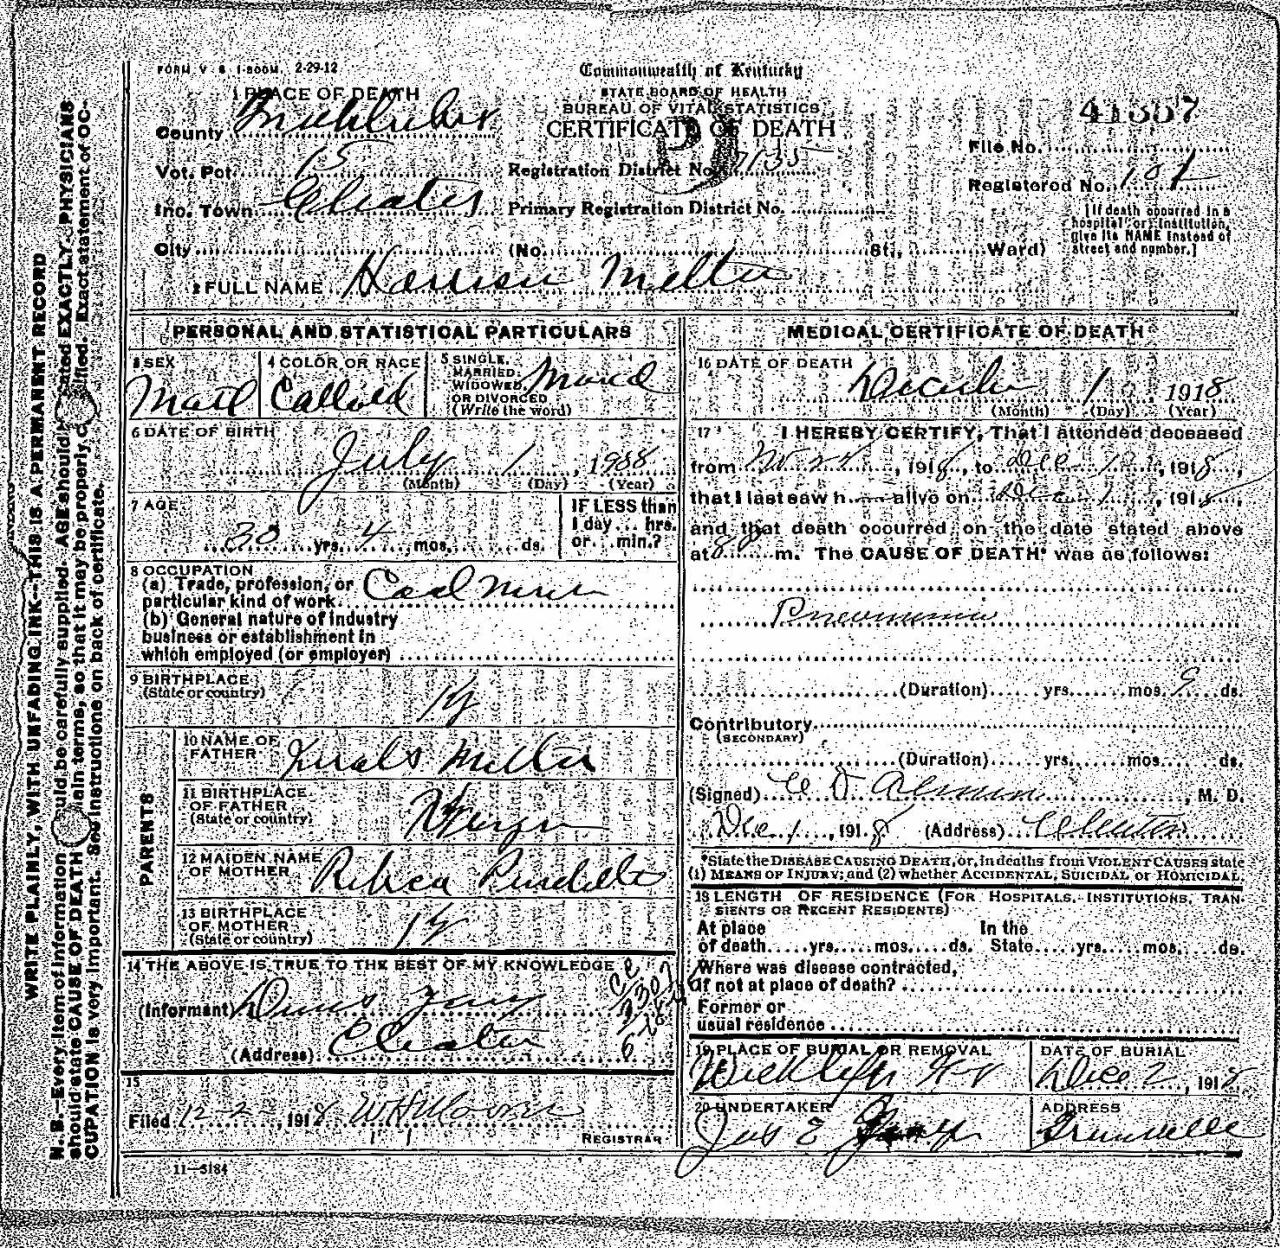 FORM V S 1-500M 2-29-12
Commonwealth of Kentucky
STATE BOARD OF HEALTH
BUREAU OF VITAL STATISTICS
CERTIFICATE OF DEATH
1 PLACE OF DEATH
County
Vot. Pct. 15
Inc. Town Cleaton
City (No. St., Ward)
Registration District No. 7135
Primary Registration District No.
File No. 41337
Registered No. 101
[If death occurred in a hospital or institution, give its NAME instead of street and number.]
2 FULL NAME Harrison Melton
PERSONAL AND STATISTICAL PARTICULARS
3 SEX Male
4 COLOR OR RACE Collored
5 SINGLE, MARRIED, WIDOWED, OR DIVORCED (Write the word)
6 DATE OF BIRTH July 1, 1988
(Month) (Day) (Year)
7 AGE 30 yrs. 4 mos. ds.
IF LESS than 1 day... hrs. or... min.?
8 OCCUPATION
(a) Trade, profession, or particular kind of work Coal Miner
(b) General nature of industry business or establishment in which employed (or employer)
9 BIRTHPLACE (State or country) Ky
PARENTS
10 NAME OF FATHER Melton
11 BIRTHPLACE OF FATHER (State or country)
12 MAIDEN NAME OF MOTHER Rebeca
13 BIRTHPLACE OF MOTHER (State or country) Ky
14 THE ABOVE IS TRUE TO THE BEST OF MY KNOWLEDGE
(Informant)
(Address) Cleaton
15
Filed 12-2-, 1918 W H Moore
REGISTRAR
11-5184
MEDICAL CERTIFICATE OF DEATH
16 DATE OF DEATH December 1, 1918
(Month) (Day) (Year)
17 I HEREBY CERTIFY, That I attended deceased
from Nov, 1918, to Dec 1, 1918,
that I last saw h alive on Dec 1, 1918
and that death occurred on the date stated above
at 8 P m. The CAUSE OF DEATH* was as follows:
Pneumonia
(Duration) yrs. mos. 9 ds.
Contributory
(SECONDARY)
(Duration) yrs. mos. ds.
(Signed) C D, M. D.
Dec 1, 1918 (Address) Cleaton
*State the DISEASE CAUSING DEATH, or, in deaths from VIOLENT CAUSES state
(1) MEANS OF INJURY; and (2) whether ACCIDENTAL, SUICIDAL or HOMICIDAL
18 LENGTH OF RESIDENCE (FOR HOSPITALS, INSTITUTIONS, TRANSIENTS OR RECENT RESIDENTS)
At place of death yrs. mos. ds. In the State yrs. mos. ds.
Where was disease contracted, if not at place of death?
Former or usual residence
19 PLACE OF BURIAL OR REMOVAL Wickliffe Ky
DATE OF BURIAL Dec 2, 1918
20 UNDERTAKER Jas E
ADDRESS Greenville
WRITE PLAINLY, WITH UNFADING INK—THIS IS A PERMANENT RECORD
N. B.—Every item of information should be carefully supplied. AGE should be stated EXACTLY. PHYSICIANS
should state CAUSE OF DEATH in plain terms, so that it may be properly classified. Exact statement of OC-
CUPATION is very important. See instructions on back of certificate.